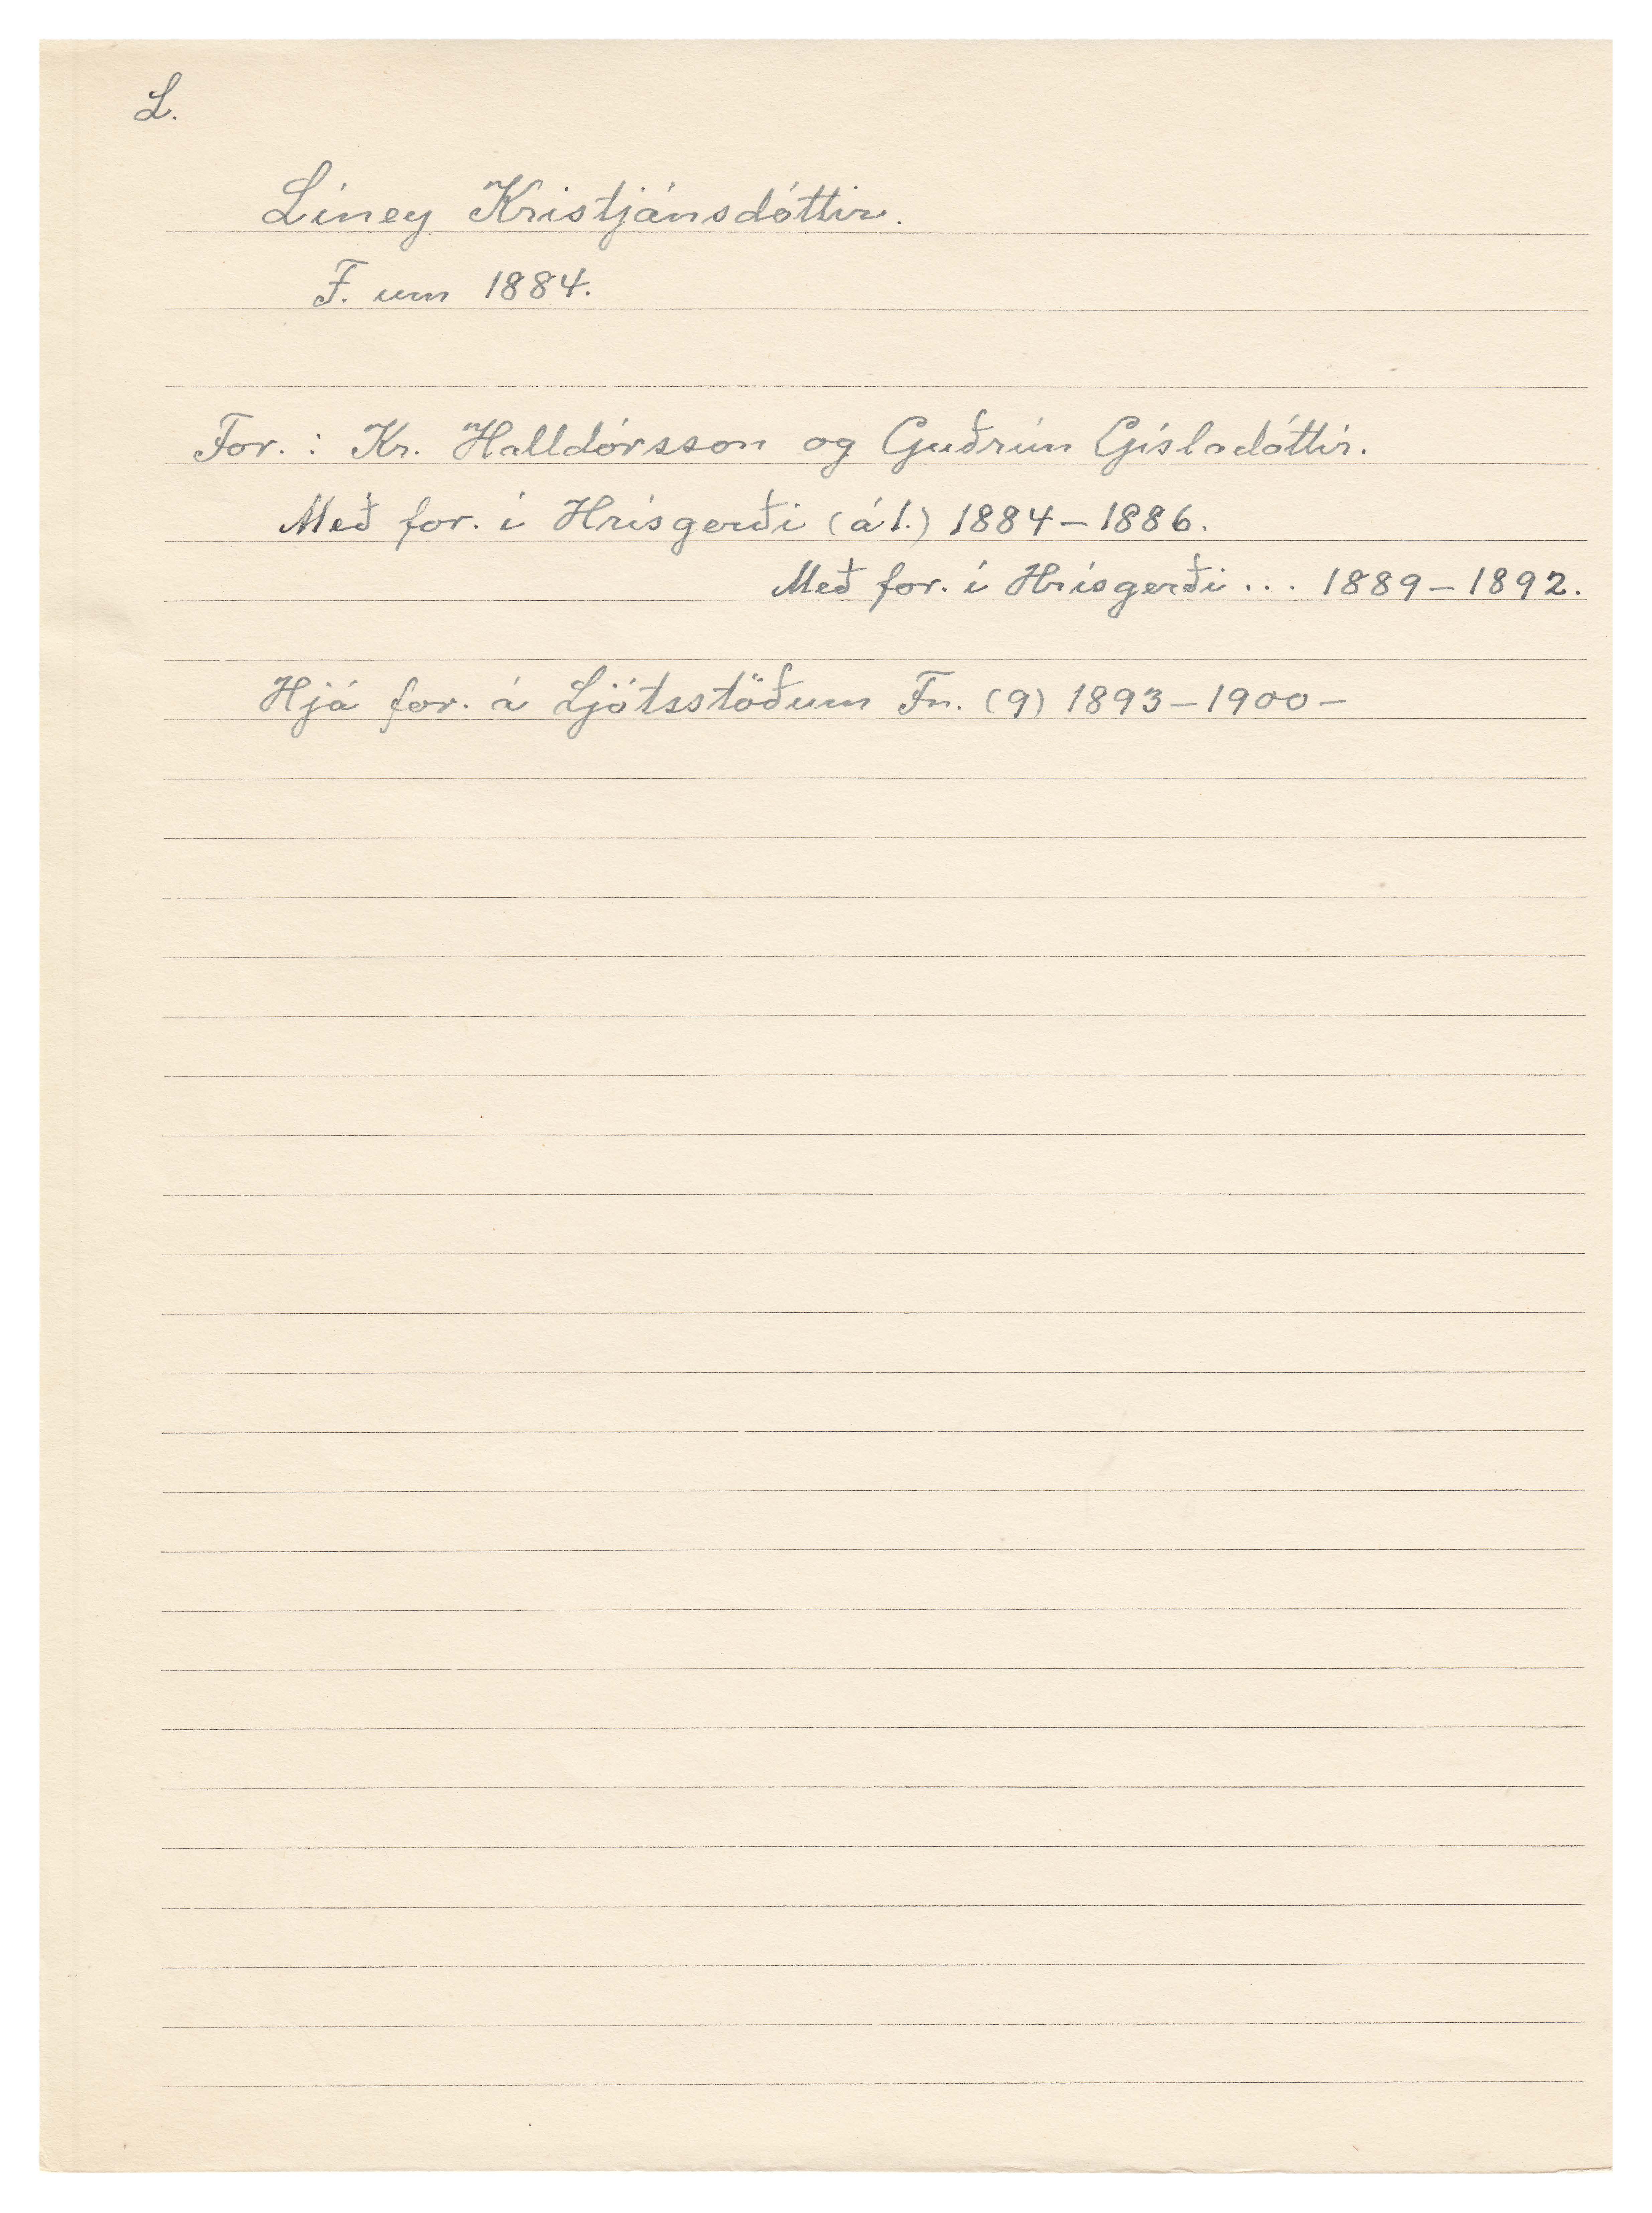 L.
Líney Kristjánsdóttir.
F. um 1884.
For.: Kr. Halldórsson og Guðrún Gísladóttir.
Með for. í Hrísgerði (á 1.) 1884-1886.
Með for. í Hrísgerði ... 1889-1892.
Hjá for. á Ljótsstöðum Fn. (9) 1893-1900-